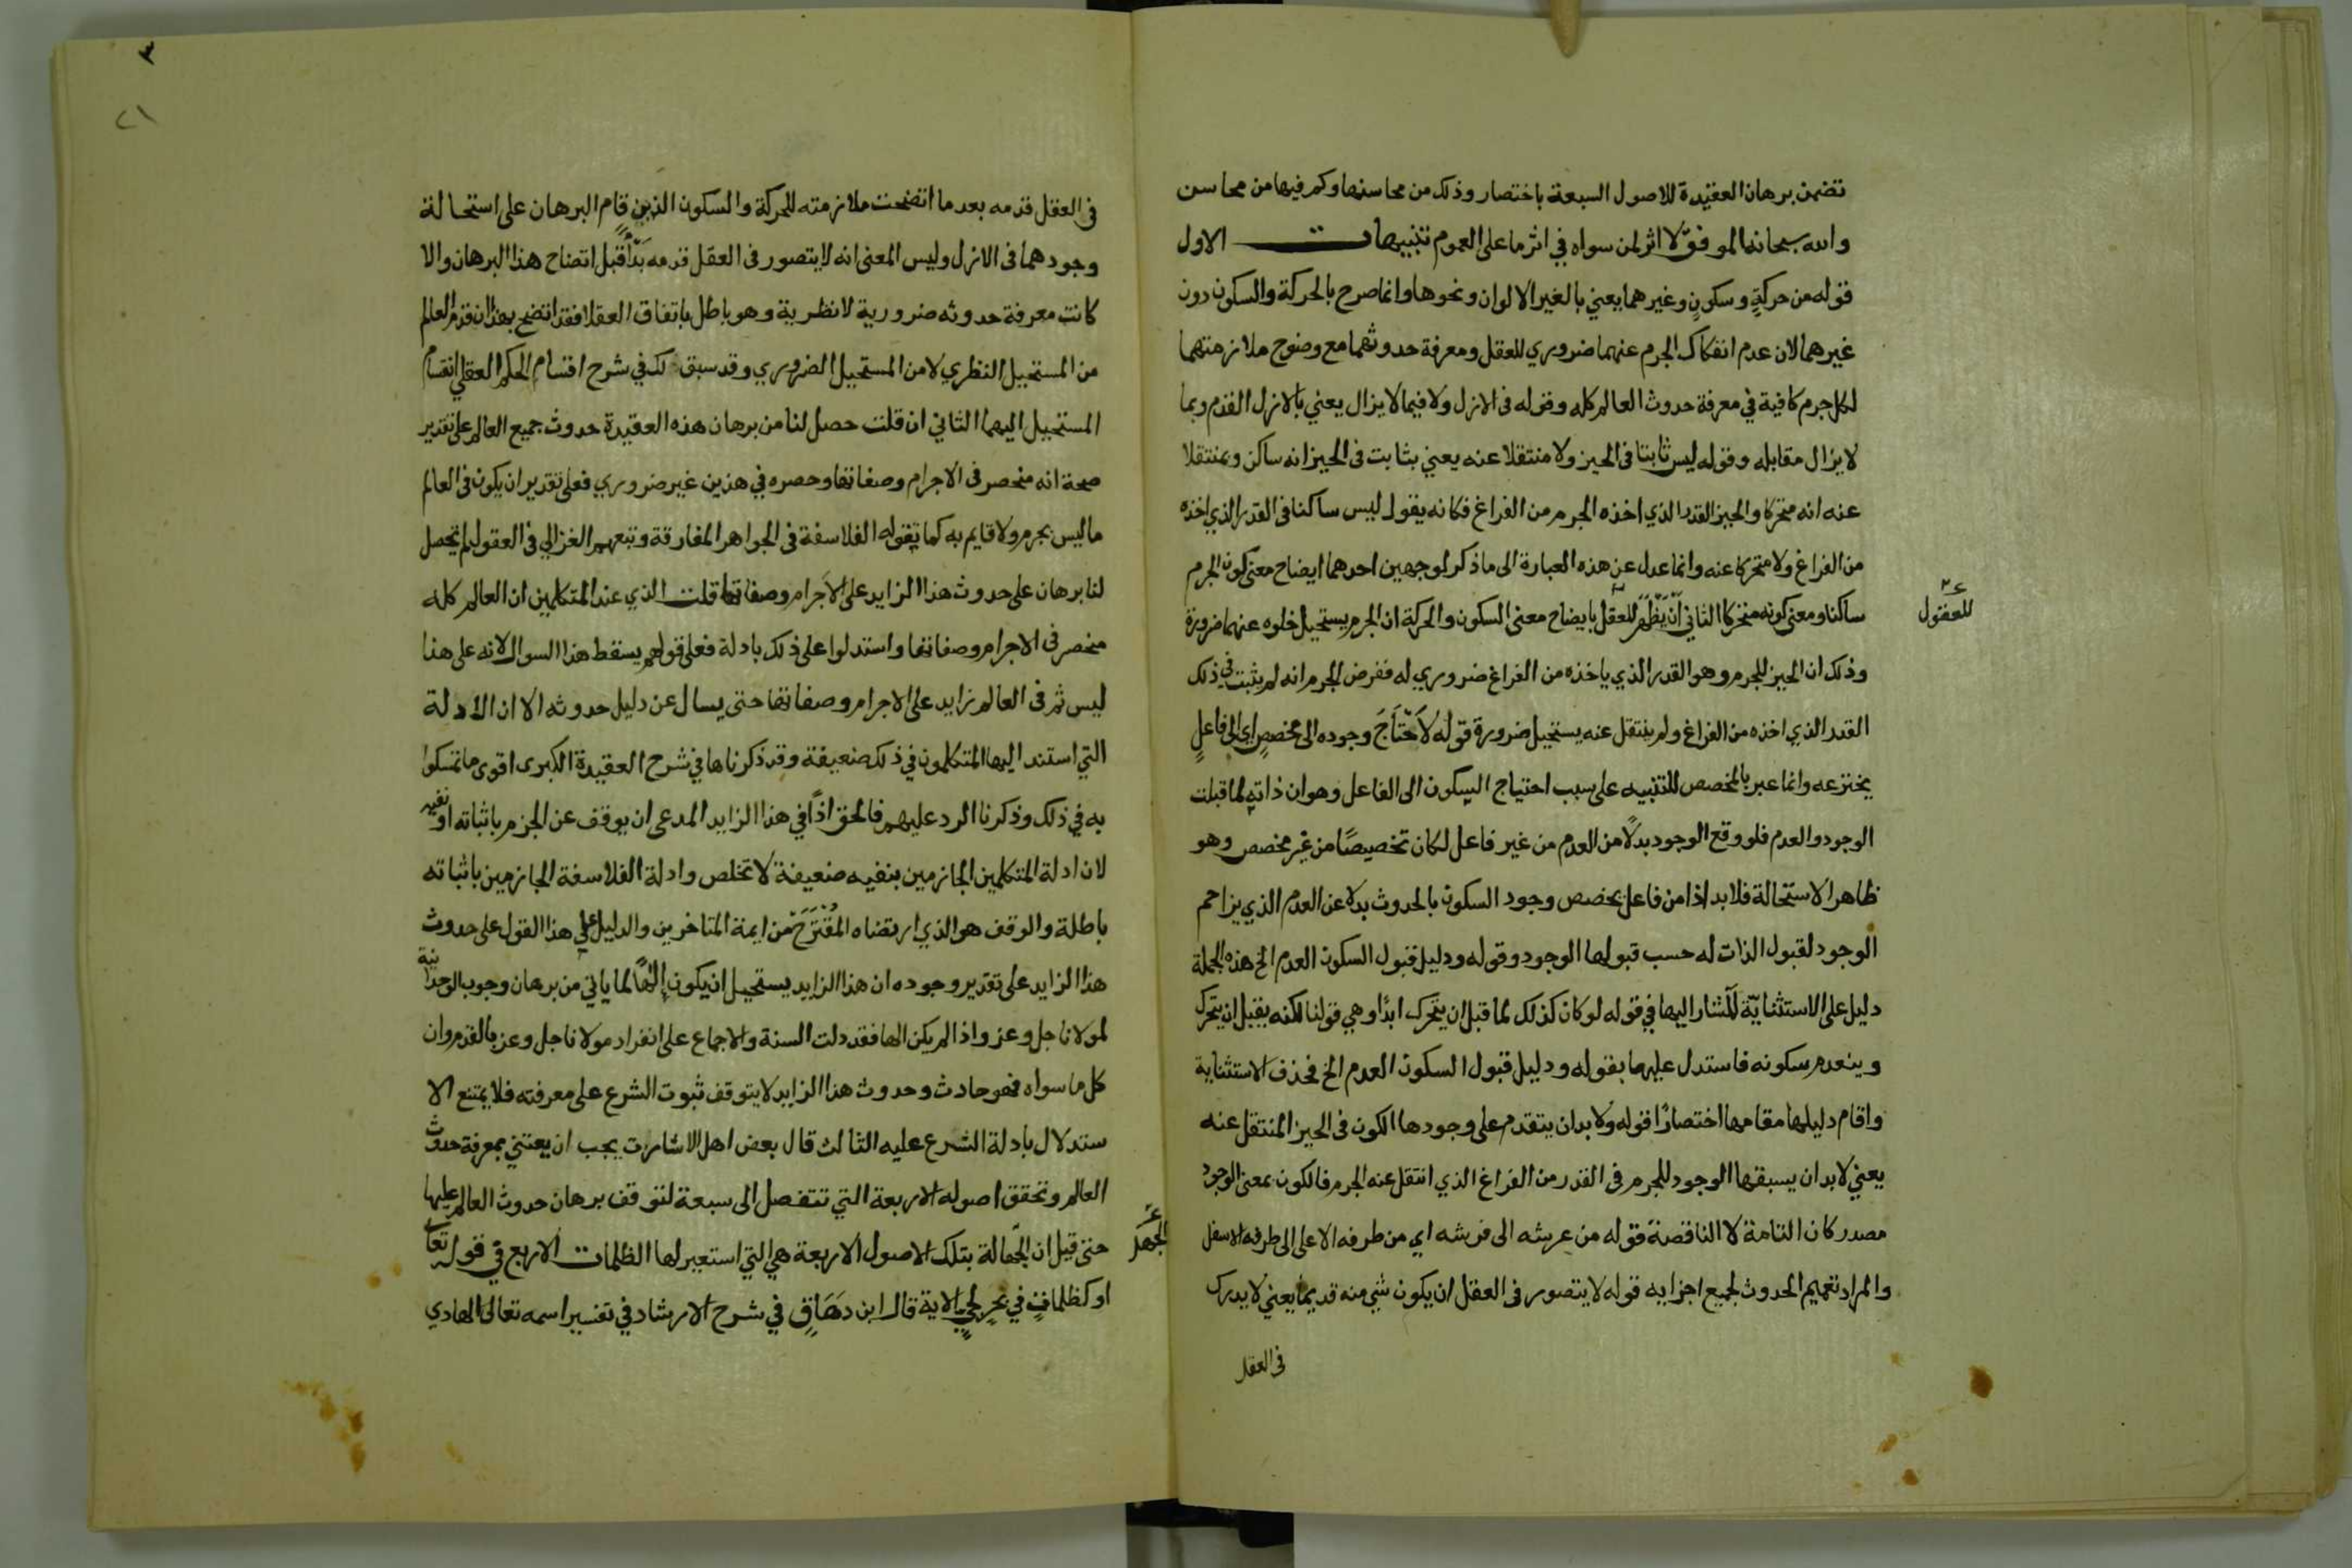 تضمن برهان العقيدة للاصول السبعة باختصار وذلك من محاسنها وكم فيها من محاسن
والله سبحانه الموفق لا اثر لمن سواه في اثر ما على العموم تنبيهات الاول
قوله من حركةٍ وسكونٍ وغيرهما يعني بالغير الالوان ونحوها وانما صرح بالحركة والسكون دون
غيرهما لان عدم انفكاك الجرم عنهما ضروري للعقل ومعرفة حدوثهما مع وضوح ملازمتهما
لكل جرم كافية في معرفة حدوث العالم كله وقوله فى الازل ولا فيما لا يزال يعني بالازل القدم وبما
لا يزال مقابله وقوله ليس ثابتا فى الحيز ولا منتقلا عنه يعني بثابت فى الحيز انه ساكن وبمنتقلا
عنه انه متحركا والحيز القدر الذي اخذه الجرم من الفراغ فكانه يقول ليس ساكنا فى القدر الذي اخذه
من الفراغ ولا متحركا عنه وانما عدل عن هذه العبارة الى ما ذكر لوجهين احدهما ايضاح معنى كون الجرم
ساكنا ومعنى كونه متحركا الثاني اَنْ يَظْهَرَ للعقل بايضاح معنى السكون والحركة ان الجرم يستحيل خلوه عنهما ضرورة
للعقول
وذلك ان الحيز للجرم وهو القدر الذي ياخذه من الفراغ ضروري له ففرض الجرم انه لم يثبت في ذلك
القدر الذي اخذه من الفراغ ولم ينتقل عنه يستحيل ضرورة قوله لاَحْتَاجَ وجوده الى مخصصٍ اي الى فاعلٍ
يخترعه وانما عبر بالمخصص للتنبيه على سبب احتياج السكون الى الفاعل وهو ان ذاته لما قبلت
الوجود والعدم فلو وقع الوجود بدلًا من العدم من غير فاعل لكان تخصيصًا من غير مخصص وهو
ظاهر الاستحالة فلا بد اذا من فاعل يخصص وجود السكون بالحدوث بدلا عن العدم الذي يزاحم
الوجود لقبول الذات له حسب قبولها الوجود وقوله ودليل قبول السكون العدم الخ هذه الجملة
دليل على الاستثنائيّة المشار اليها في قوله لو كان كذلك لما قبل ان يتحرك ابدًا وهي قولنا لكنه يقبل ان يتحرك
وينعدم سكونه فاستدل عليها بقوله ودليل قبول السكون العدم الخ فحذف الاستثنائية
واقام دليلها مقامها اختصارًا قوله ولا بد ان يتقدم على وجودها الكون فى الحيز المنتقل عنه
يعني لا بد ان يسبقها الوجود للجرم فى القدر من الفراغ الذي انتقل عنه الجرم فالكون بمعنى الوجود
مصدر كان التامة لا الناقصة قوله من عرشه الى فرشه اي من طرفه الاعلى الى طرفه الاسفل
والمراد تعميم الحدوث لجميع اجزايه قوله لا يتصور فى العقل ان يكون شي منه قديما يعني لا يدرك
فى العقل
٣
٢١
فى العقل قدمه بعد ما اتضحت ملازمته للحركة والسكون الذين قام البرهان على استحالة
وجودهما فى الازل وليس المعنى انه لا يتصور فى العقل قدمه بَدْأً قبل اتضاح هذا البرهان والا
كانت معرفة حدوثه ضرورية لا نظرية وهو باطل باتفاق العقلا فقد اتضح بهذا ان قدم العالم
من المستحيل النظري لا من المستحيل الضروري وقد سبق لك في شرح اقسام الحكم العقلي انقسام
المستحيل اليهما الثاني ان قلت حصل لنا من برهان هذه العقيدة حدوث جميع العالم على تقدير
صحة انه منحصر فى الاجرام وصفاتها وحصره في هذين غير ضروري فعلى تقدير ان يكون فى العالم
ما ليس بجرم ولا قايم به كما تقوله الفلاسفة فى الجواهر المفارقة وتبعهم الغزالي فى العقول لم يتحصل
لنا برهان على حدوث هذا الزايد على الاجرام وصفاتها قلت الذي عند المتكلمين ان العالم كله
منحصر فى الاجرام وصفاتها واستدلوا على ذلك بادلة فعلى قولهم يسقط هذا السوال لانه على هذا
ليس ثم فى العالم زايد على الاجرام وصفاتها حتى يسال عن دليل حدوثه الا ان الادلة
التي استند اليها المتكلمون في ذلك ضعيفة وقد ذكرناها في شرح العقيدة الكبرى اقوى ما تمسكوا
به في ذلك وذكرنا الرد عليهم فالحق اذًا في هذا الزايد المدعى ان يوقف عن الجزم باثباته او نفيه
لان ادلة المتكلمين الجازمين بنفيه ضعيفة لا تخلص وادلة الفلاسفة الجازمين باثباته
باطلة والوقف هو الذي ارتضاه المُقْتَرَحْ من ايمة المتاخرين والدليل على هذا القول على حدوث
هذا الزايد على تقدير وجوده ان هذا الزايد يستحيل ان يكون إِلٰهًا لما ياتي من برهان وجوب الوحدانية
لمولانا جل وعز واذا لم يكن الها فقد دلت السنة والاجماع على انفراد مولانا جل وعز بالقدم وان
كل ما سواه فهو حادث وحدوث هذا الزايد لا يتوقف ثبوت الشرع على معرفته فلا يمتنع الا
ستدلال بادلة الشرع عليه الثالث قال بعض اهل الاشارت يجب ان يعتني بمعرفة حدوث
العالم وتحقق اصوله الاربعة التي تتفصل الى سبعة لتوقف برهان حدوث العالم عليها
حتى قيل ان الجهالة بتلك الاصول الاربعة هي التي استعير لها الظلمات الاربع في قوله تعالى
الجهل
او كظلماتٍ في بحرٍ لجيٍ الاية قال ابن دهَاقٍ في شرح الارشاد في تفسير اسمه تعالى الهادي